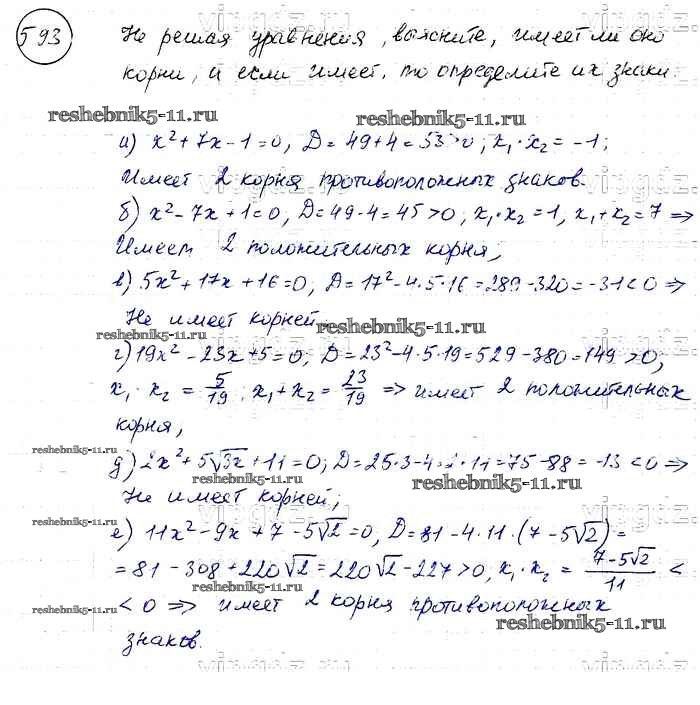 593 Не решая уравнения, выясните, имеет ли оно
корни, и если имеет, то определите их знаки.
reshebnik5-11.ru reshebnik5-11.ru
а) x² + 7x - 1 = 0, D = 49 + 4 = 53 > 0; x₁ · x₂ = -1;
Имеет 2 корня противоположных знаков.
б) x² - 7x + 1 = 0, D = 49 - 4 = 45 > 0, x₁ · x₂ = 1, x₁ + x₂ = 7 ⇒
Имеет 2 положительных корня;
в) 5x² + 17x + 16 = 0, D = 17² - 4·5·16 = 289 - 320 = -31 < 0 ⇒
Не имеет корней.
reshebnik5-11.ru reshebnik5-11.ru
г) 19x² - 23x + 5 = 0; D = 23² - 4·5·19 = 529 - 380 = 149 > 0;
x₁ · x₂ = 5/19; x₁ + x₂ = 23/19 ⇒ имеет 2 положительных
корня,
reshebnik5-11.ru
д) 2x² + 5√3x + 11 = 0; D = 25·3 - 4·2·11 = 75 - 88 = -13 < 0 ⇒
reshebnik5-11.ru reshebnik5-11.ru
Не имеет корней;
reshebnik5-11.ru
е) 11x² - 9x + 7 - 5√2 = 0, D = 81 - 4·11·(7 - 5√2) =
= 81 - 308 + 220√2 = 220√2 - 227 > 0, x₁ · x₂ = (7-5√2)/11 <
reshebnik5-11.ru
< 0 ⇒ имеет 2 корня противоположных
reshebnik5-11.ru
знаков.